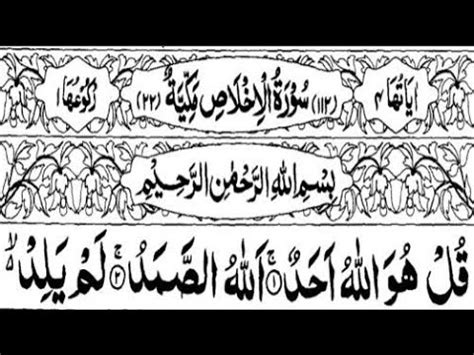 اٰيَاتُهَا ٤ (١١٢) سُوْرَةُ الْاِخْلَاصِ مَكِّيَّةٌ (٢٢) رُكُوْعُهَا ١
بِسْمِ اللهِ الرَّحْمٰنِ الرَّحِيْمِ
قُلْ هُوَ اللهُ اَحَدٌ ۚ﴿١﴾ اَللهُ الصَّمَدُ ۚ﴿٢﴾ لَمْ يَلِدْ ۙ